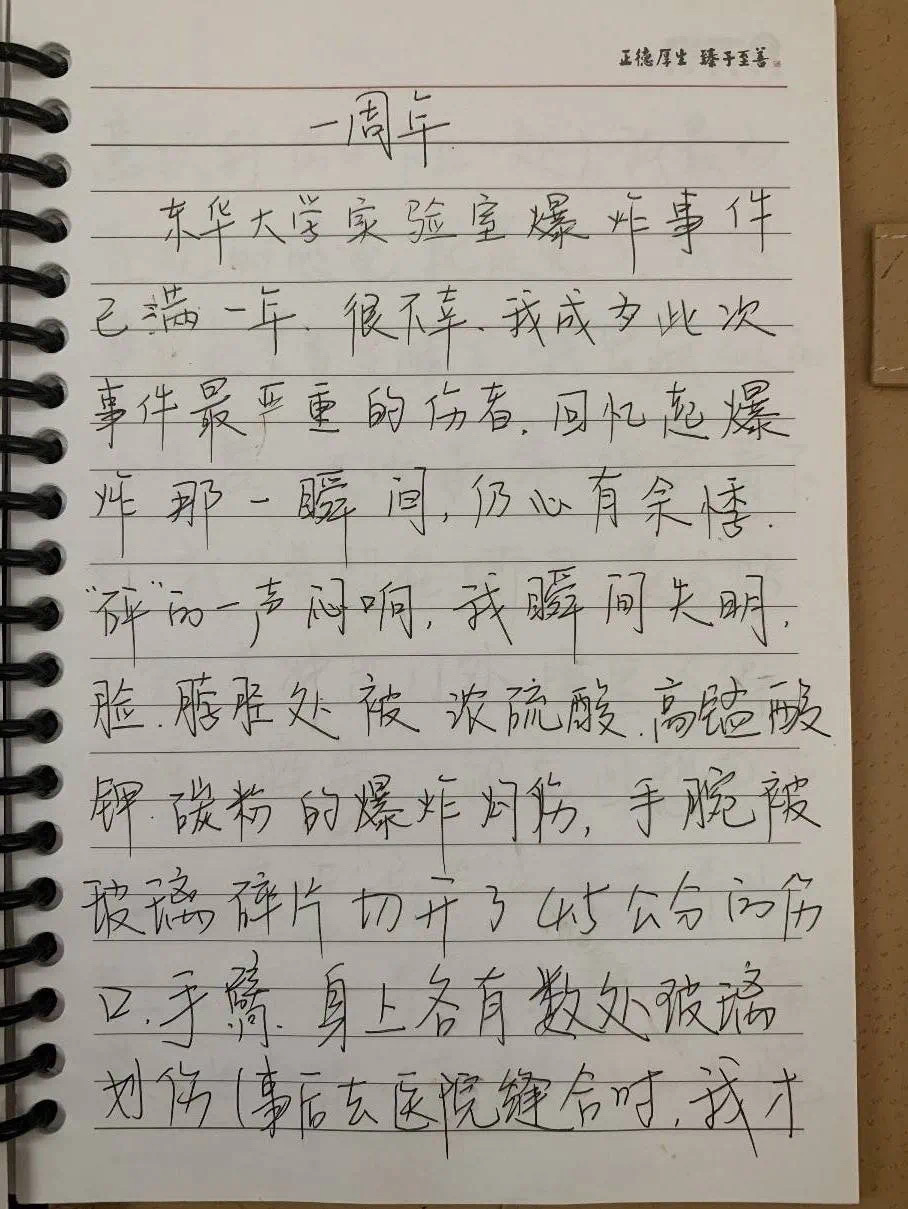 正德厚生 臻于至善
一周年
东华大学实验室爆炸事件
已满一年、很不幸、我成为此次
事件最严重的伤者,回忆起爆
炸那一瞬间,仍心有余悸.
“砰”的一声闷响,我瞬间失明,
脸、脖胫处被浓硫酸、高锰酸
钾、碳粉的爆炸灼伤,手腕被
玻璃碎片切开了4.5公分的伤
口、手臂、身上各有数处玻璃
划伤(事后去医院缝合时,我才